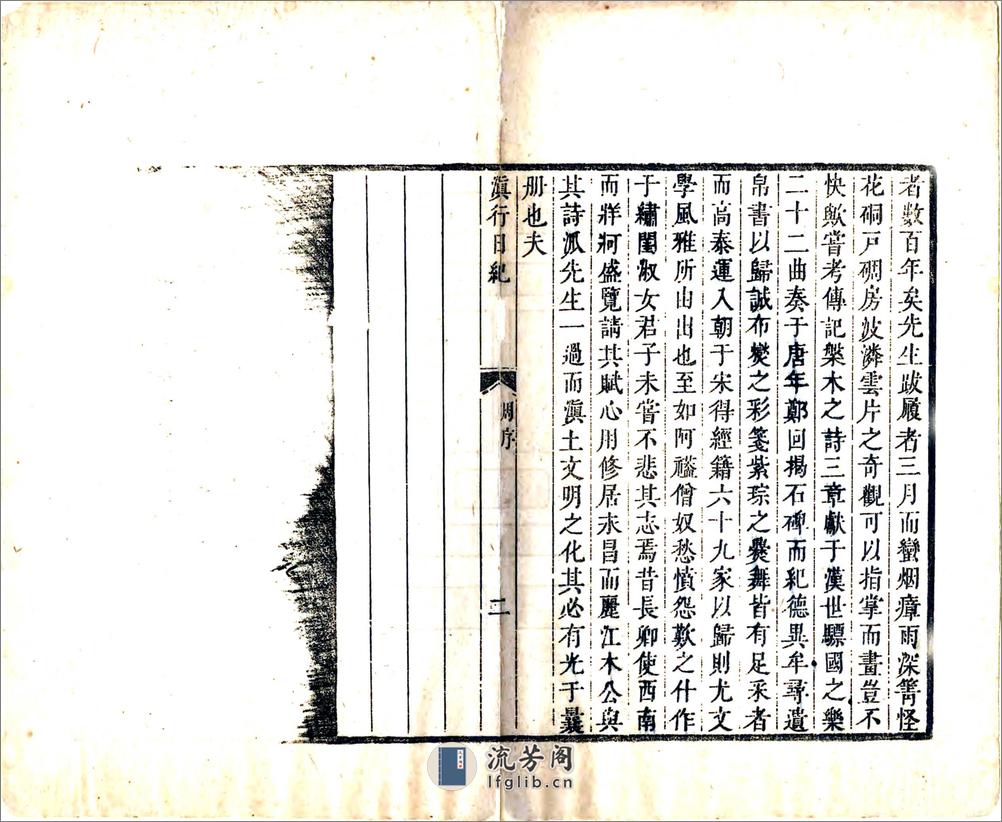 者數百年矣先生跋履者三月而蠻烟瘴雨深箐怪
花硐戸碉房波潾雲片之奇觀可以指掌而畫豈不
快歟嘗考傳記槃木之詩三章獻于漢世驃國之樂
二十二曲奏于唐年鄭回揭石碑而紀德異牟尋遺
帛書以歸誠布燮之彩箋紫琮之爨舞皆有足采者
而高泰運入朝于宋得經籍六十九家以歸則尤文
學風雅所由出也至如阿䘏僧奴愁憤怨歎之什作
于繡閨淑女君子未嘗不悲其志焉昔長卿使西南
而牂牁盛覽請其賦心用修居永昌而麗江木公與
其詩派先生一過而滇土文明之化其必有光于曩
册也夫
滇行日紀
周序
二
流芳阁
lfglib.cn